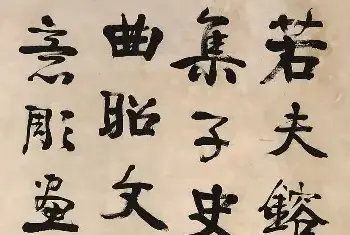 若夫鎔
集子史
曲昭文
意彫畫